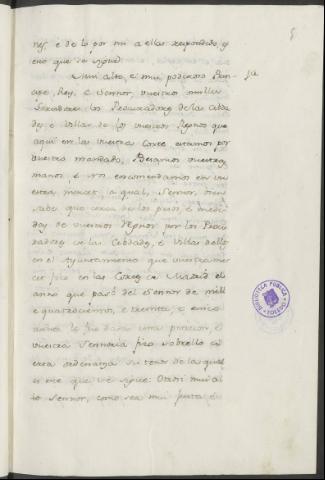 nes, e de lo por mi a ellas respondido, y
en o que se sigue.
Mui alto, e mui poderoso Prin-
cipe, Rey, e Señor, vuestros muilles
Servidores los Procuradores de las Cibda-
des e Villas de los vuestros Regnos que
aqui en la vuestra Corte estamos por
vuestro mandado, Besamos vuestras
manos e nos encomendamos en vu-
estra merced, a qual, Señor, bien
sabe que cerca de los pesos e medi-
das de vuestros Regnos por los Procu-
radores de las Cibdades, e Villas dellos
en el Ayuntamiento que vuestra mer-
ced fiso en las Cortes de Madrid el
anno que pasó del Señor de mill
e quatrocientos, e treinta e cinco
annos le fue dada una peticion, e
vuestra Sennoria fiso sobrello cie-
rta ordenanza su tenor de la qual
es este que se sigue: Otrosi mui al-
to Señor, como sea mui justa e
BIBLIOTECA PUBLICA
TOLEDO